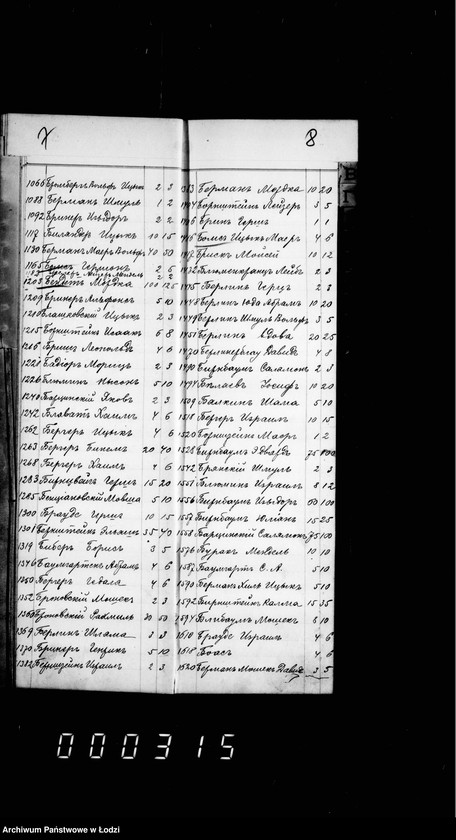 7
1066 Бромбергъ Вольфъ Ицык 2 3
1088 Берманъ Шмуль 1 2
1092 Бринеръ Изидоръ 2 2
1117 Биландеръ Ицыкъ 10 15
1130 Берманъ Маеръ Вольфъ 40 50
1165 Бомсъ Германъ 2 6
2 2
1203 Бехитъ Мордка 100 125
1209 Бринеръ Альфонсъ 5 10
1210 Блашковскій Ицыкъ 2 3
1215 Бернштейнъ Исаакъ 6 8
Бришъ Леопольдъ 4 6
1221 Бадіоръ Морицъ 2 3
1226 Блюминъ Нысонъ 5 10
1240 Борцинскій Яковъ 2 3
1242 Блаватъ Хаимъ 4 6
1262 Бергеръ Ицыкъ 4 6
1263 Бергеръ Бинемъ 20 40
1268 Бергеръ Хаимъ 4 6
1283 Бирнцвайгъ Герцъ 15 20
1285 Бенціановскій Мовша 5 10
1300 Браудъ Герцъ 10 15
1301 Бернштейнъ 35 40
1319 Биберъ Борисъ 3 5
1346 Баумгартенъ Абрамъ 4 6
1350 Бергеръ 4 6
1352 Броновскій Мошекъ 2 3
1360 Броновскій Рафаилъ 30 50
1369 Берлинъ Шлама 3 3
1370 Бринеръ Генрихъ 5 10
1382 Бернштейнъ Израиль 2 3
8
1383 Берманъ Мордка 10 20
Борнштейнъ Лейзеръ 3 5
Бринъ Герцъ 1 1
Бомсъ Ицыкъ Маеръ 4 6
Брискъ Мойсей 10 12
Блюменкранцъ Лейбъ 2 3
Берлинъ Герцъ 2 3
1448 Берлинъ Іода Абрамъ 10 20
1449 Берлинъ Шмуль Вольфъ 3 5
1451 Берлинъ вдова 20 25
1470 Берлинерблау Давидъ 4 8
1490 Бирнбаумъ Саламонъ 2 3
1494 Бѣлаевъ Іосифъ 10 20
1509 Балкинъ Шама 5 10
1518 Бергеръ Израиль 10 15
1520 Борнштейнъ Маеръ 1 2
1528 Бирнбаумъ Эдвардъ 75 100
1542 Бранскій Шмуль 2 3
1551 Блюминъ Израиль 8 12
1556 Бирнбаумъ Изыдоръ 60 100
1557 Бирнбаумъ Юліанъ 15 25
1558 Барцинскій Саламонъ 75 100
1576 Буракъ Мендель 10 10
1587 Баумгартъ С. А. 5 10
1590 Берманъ Хиль Ицыкъ 5 10
1592 Бернштейнъ Калма 15 35
Блибаумъ Мошекъ 8 10
1610 Браудъ Израиль 4 6
1618 Боасъ 4 6
1620 Берманъ Мошекъ Давидъ 3 5
000315
Archiwum Państwowe w Łodzi